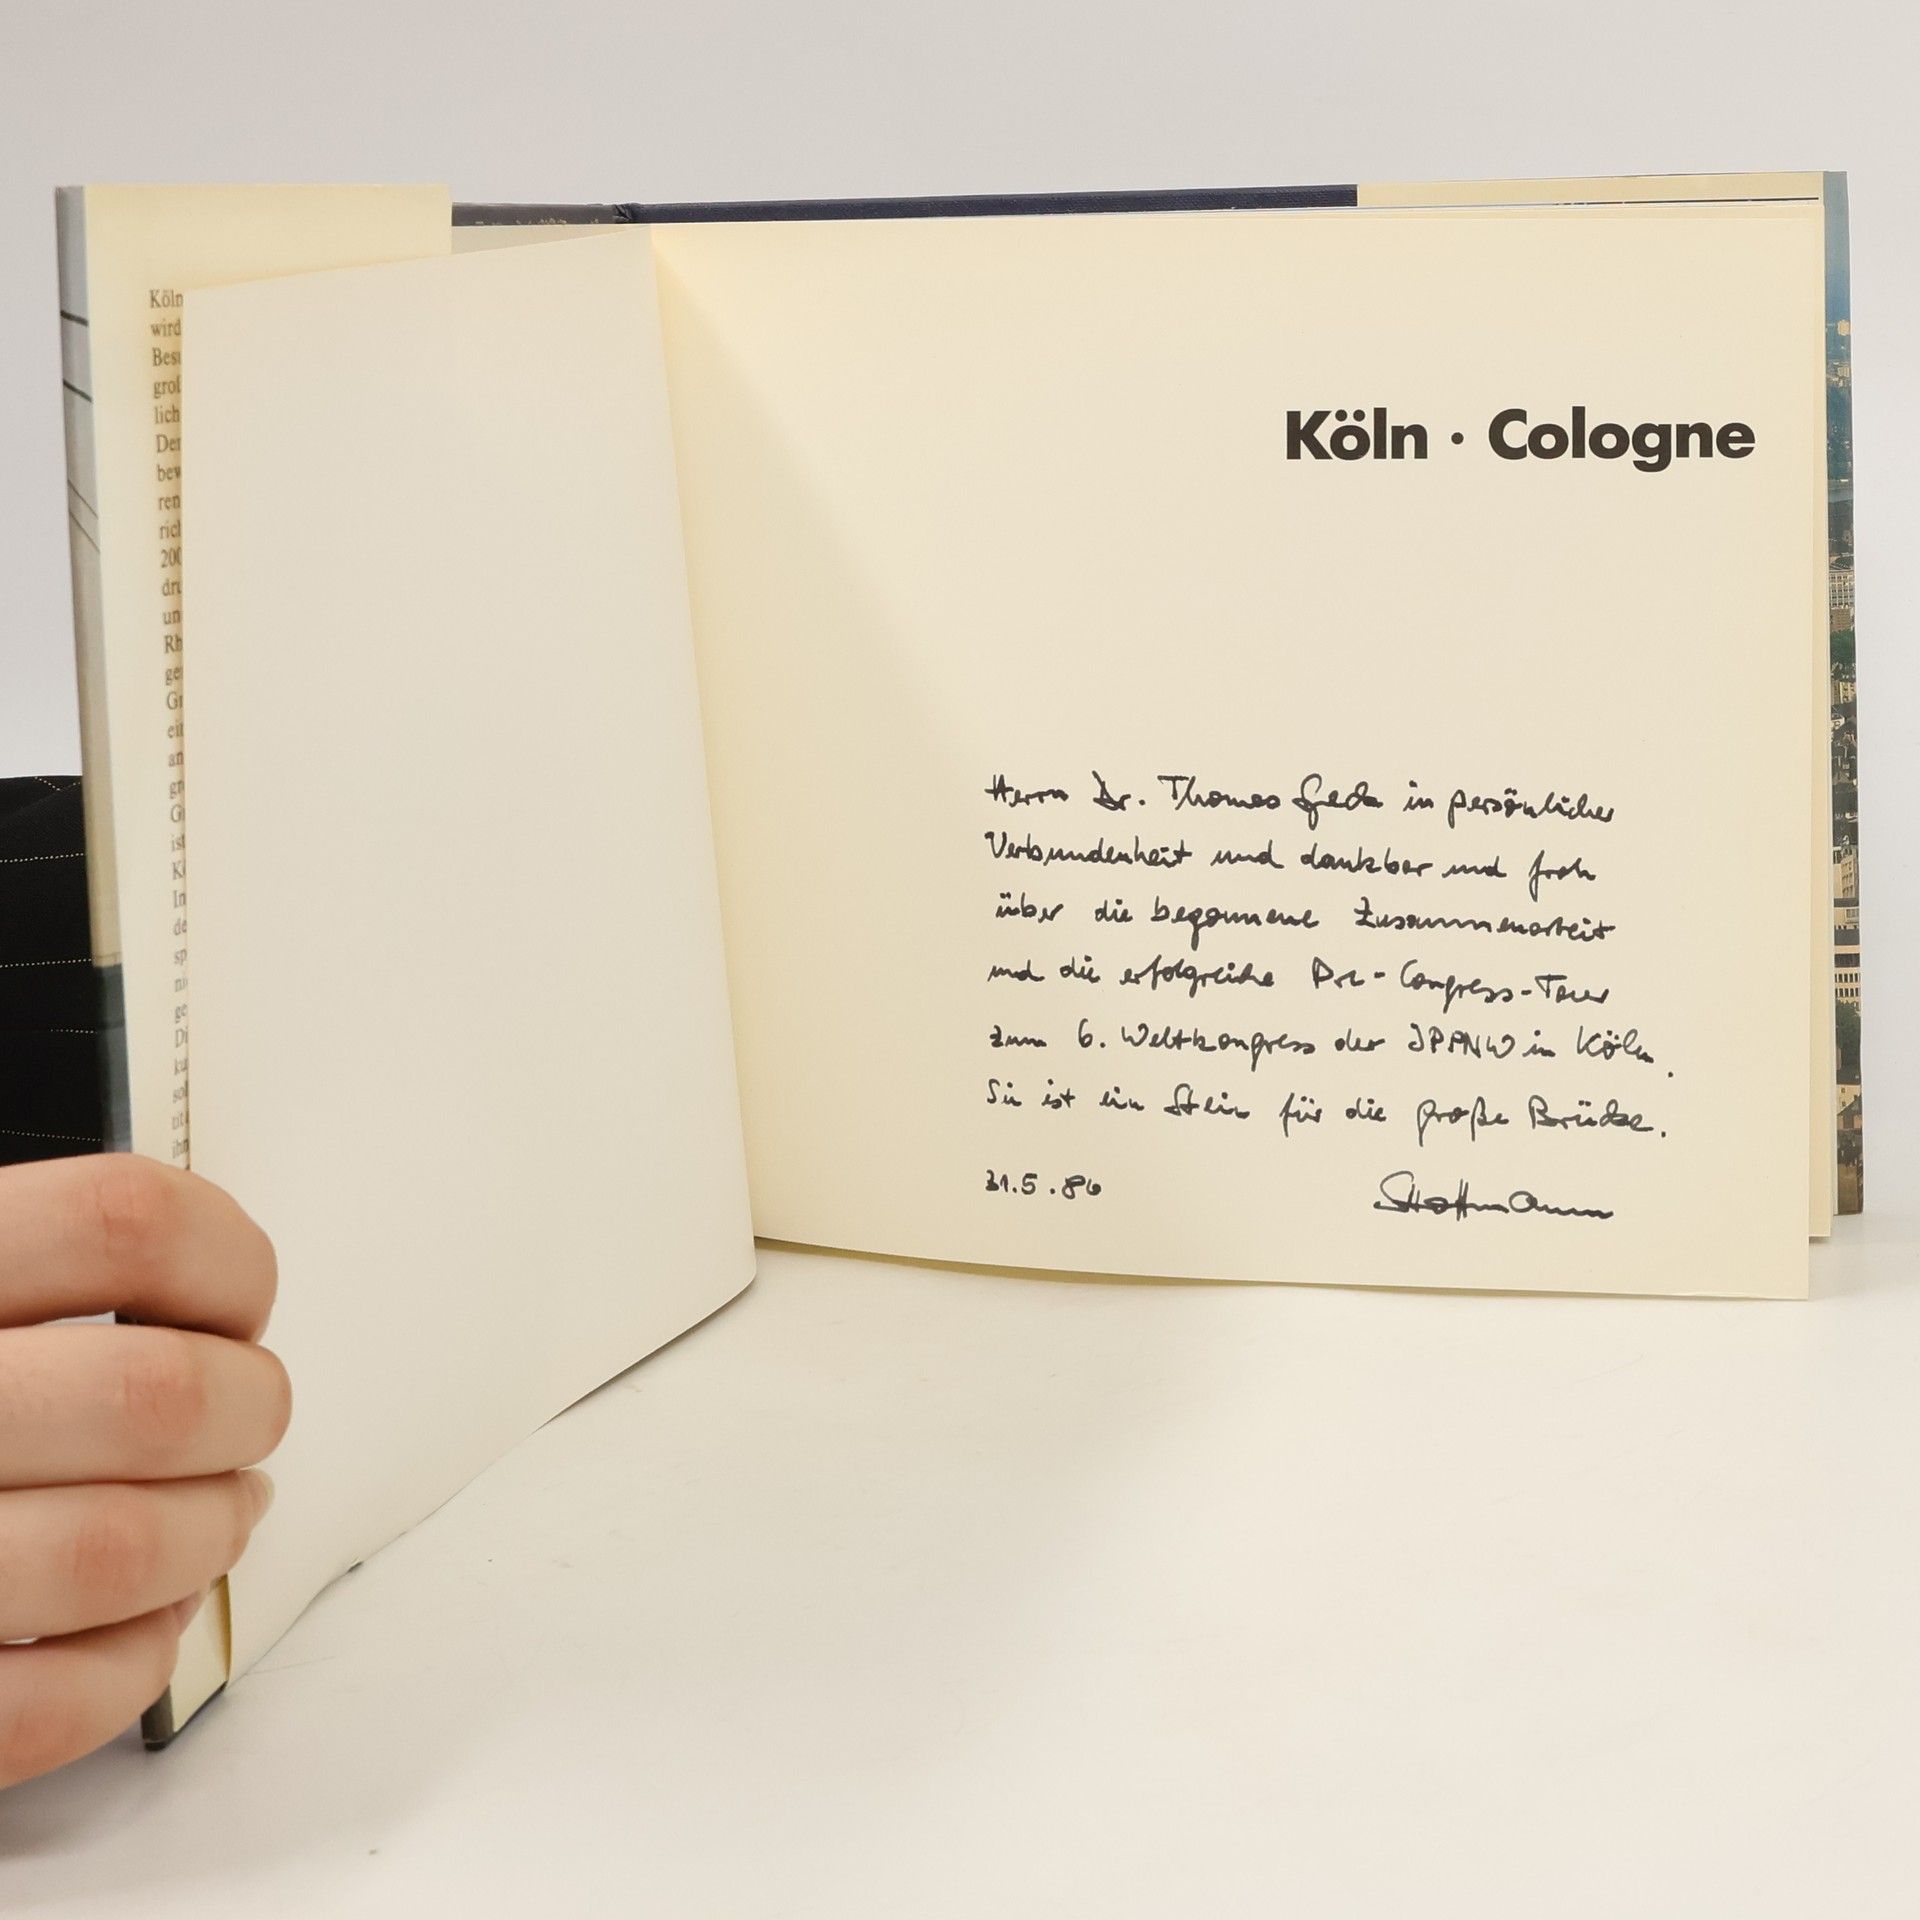 Köln
wird
Besu
groß
lich
Der
bew
ren
rich
200
dru
un
Rh
ge
Gr
ein
an
gr
G
ist
Kö
In
de
sp
ni
ge
Di
ku
sol
ihn
Köln · Cologne
Herrn Dr. Thomas in persönlicher
Verbundenheit und dankbar und froh
über die begonnene Zusammenarbeit
und die erfolgreiche -Congress-Tour
zum 6. Weltkongress der IPPNW in Köln.
Sie ist ein Stein für die große Brücke.
31.5.86